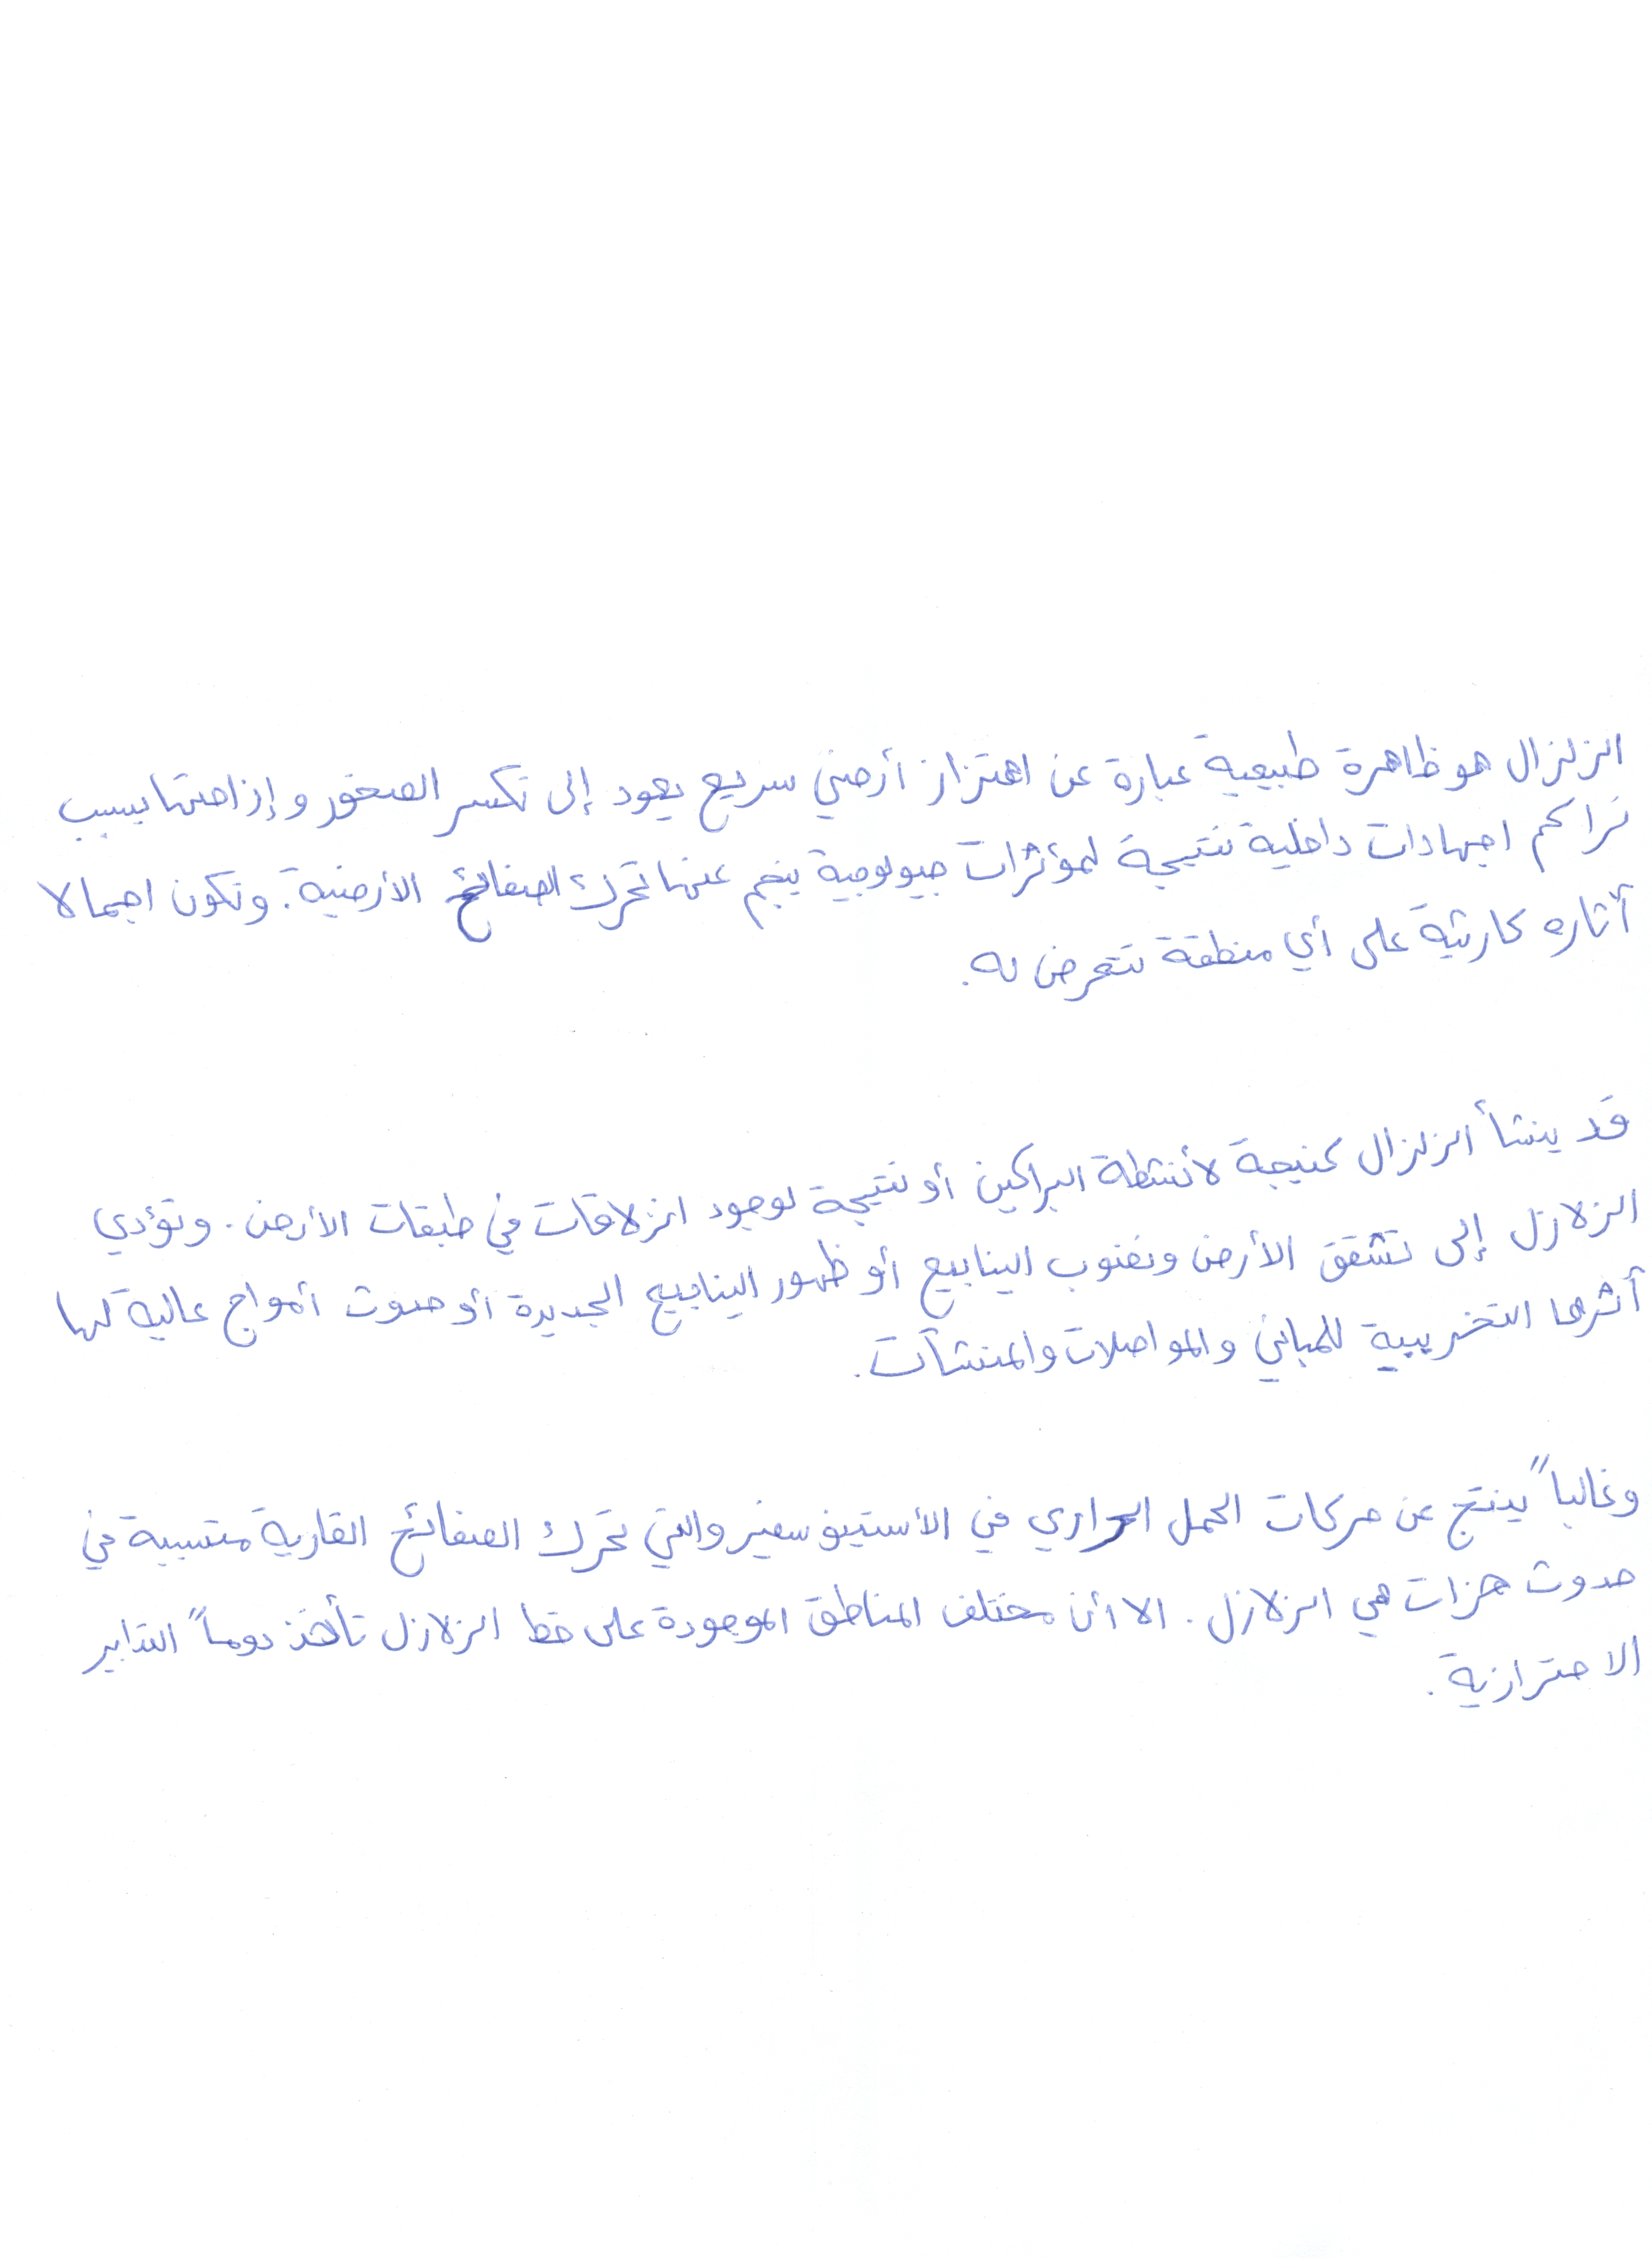 الزلزال هو ظاهرة طبيعية عبارة عن اهتزاز أرضي سريع يعود إلى تكسر الصخور وإزاحتها بسبب
تراكم اجهادات داخلية نتيجة لمؤثرات جيولوجية ينجم عنها تحرك الصفائح الأرضية. وتكون اجمالا
أثاره كارثية على أي منطقة تتعرض له.
قد ينشأ الزلزال كنيجة لأنشطة البراكين أو نتيجة لوجود انزلاقات في طبقات الأرض. وتؤدي
الزلازل إلى تشقق الأرض ونضوب الينابيع أو ظهور الينابيع الجديدة أو حدوث أمواج عالية لها
أثرها التخريبية للمباني والمواصلات والمنشآت.
وغالباً ينتج عن حركات الحمل الحراري في الأستينوسفير والتي تحرك الصفائح القارية متسببة في
حدوث هزات هي الزلازل. الا أن مختلف المناطق الموجودة على خط الزلازل تأخذ دوماً التدابير
الاحترازية.